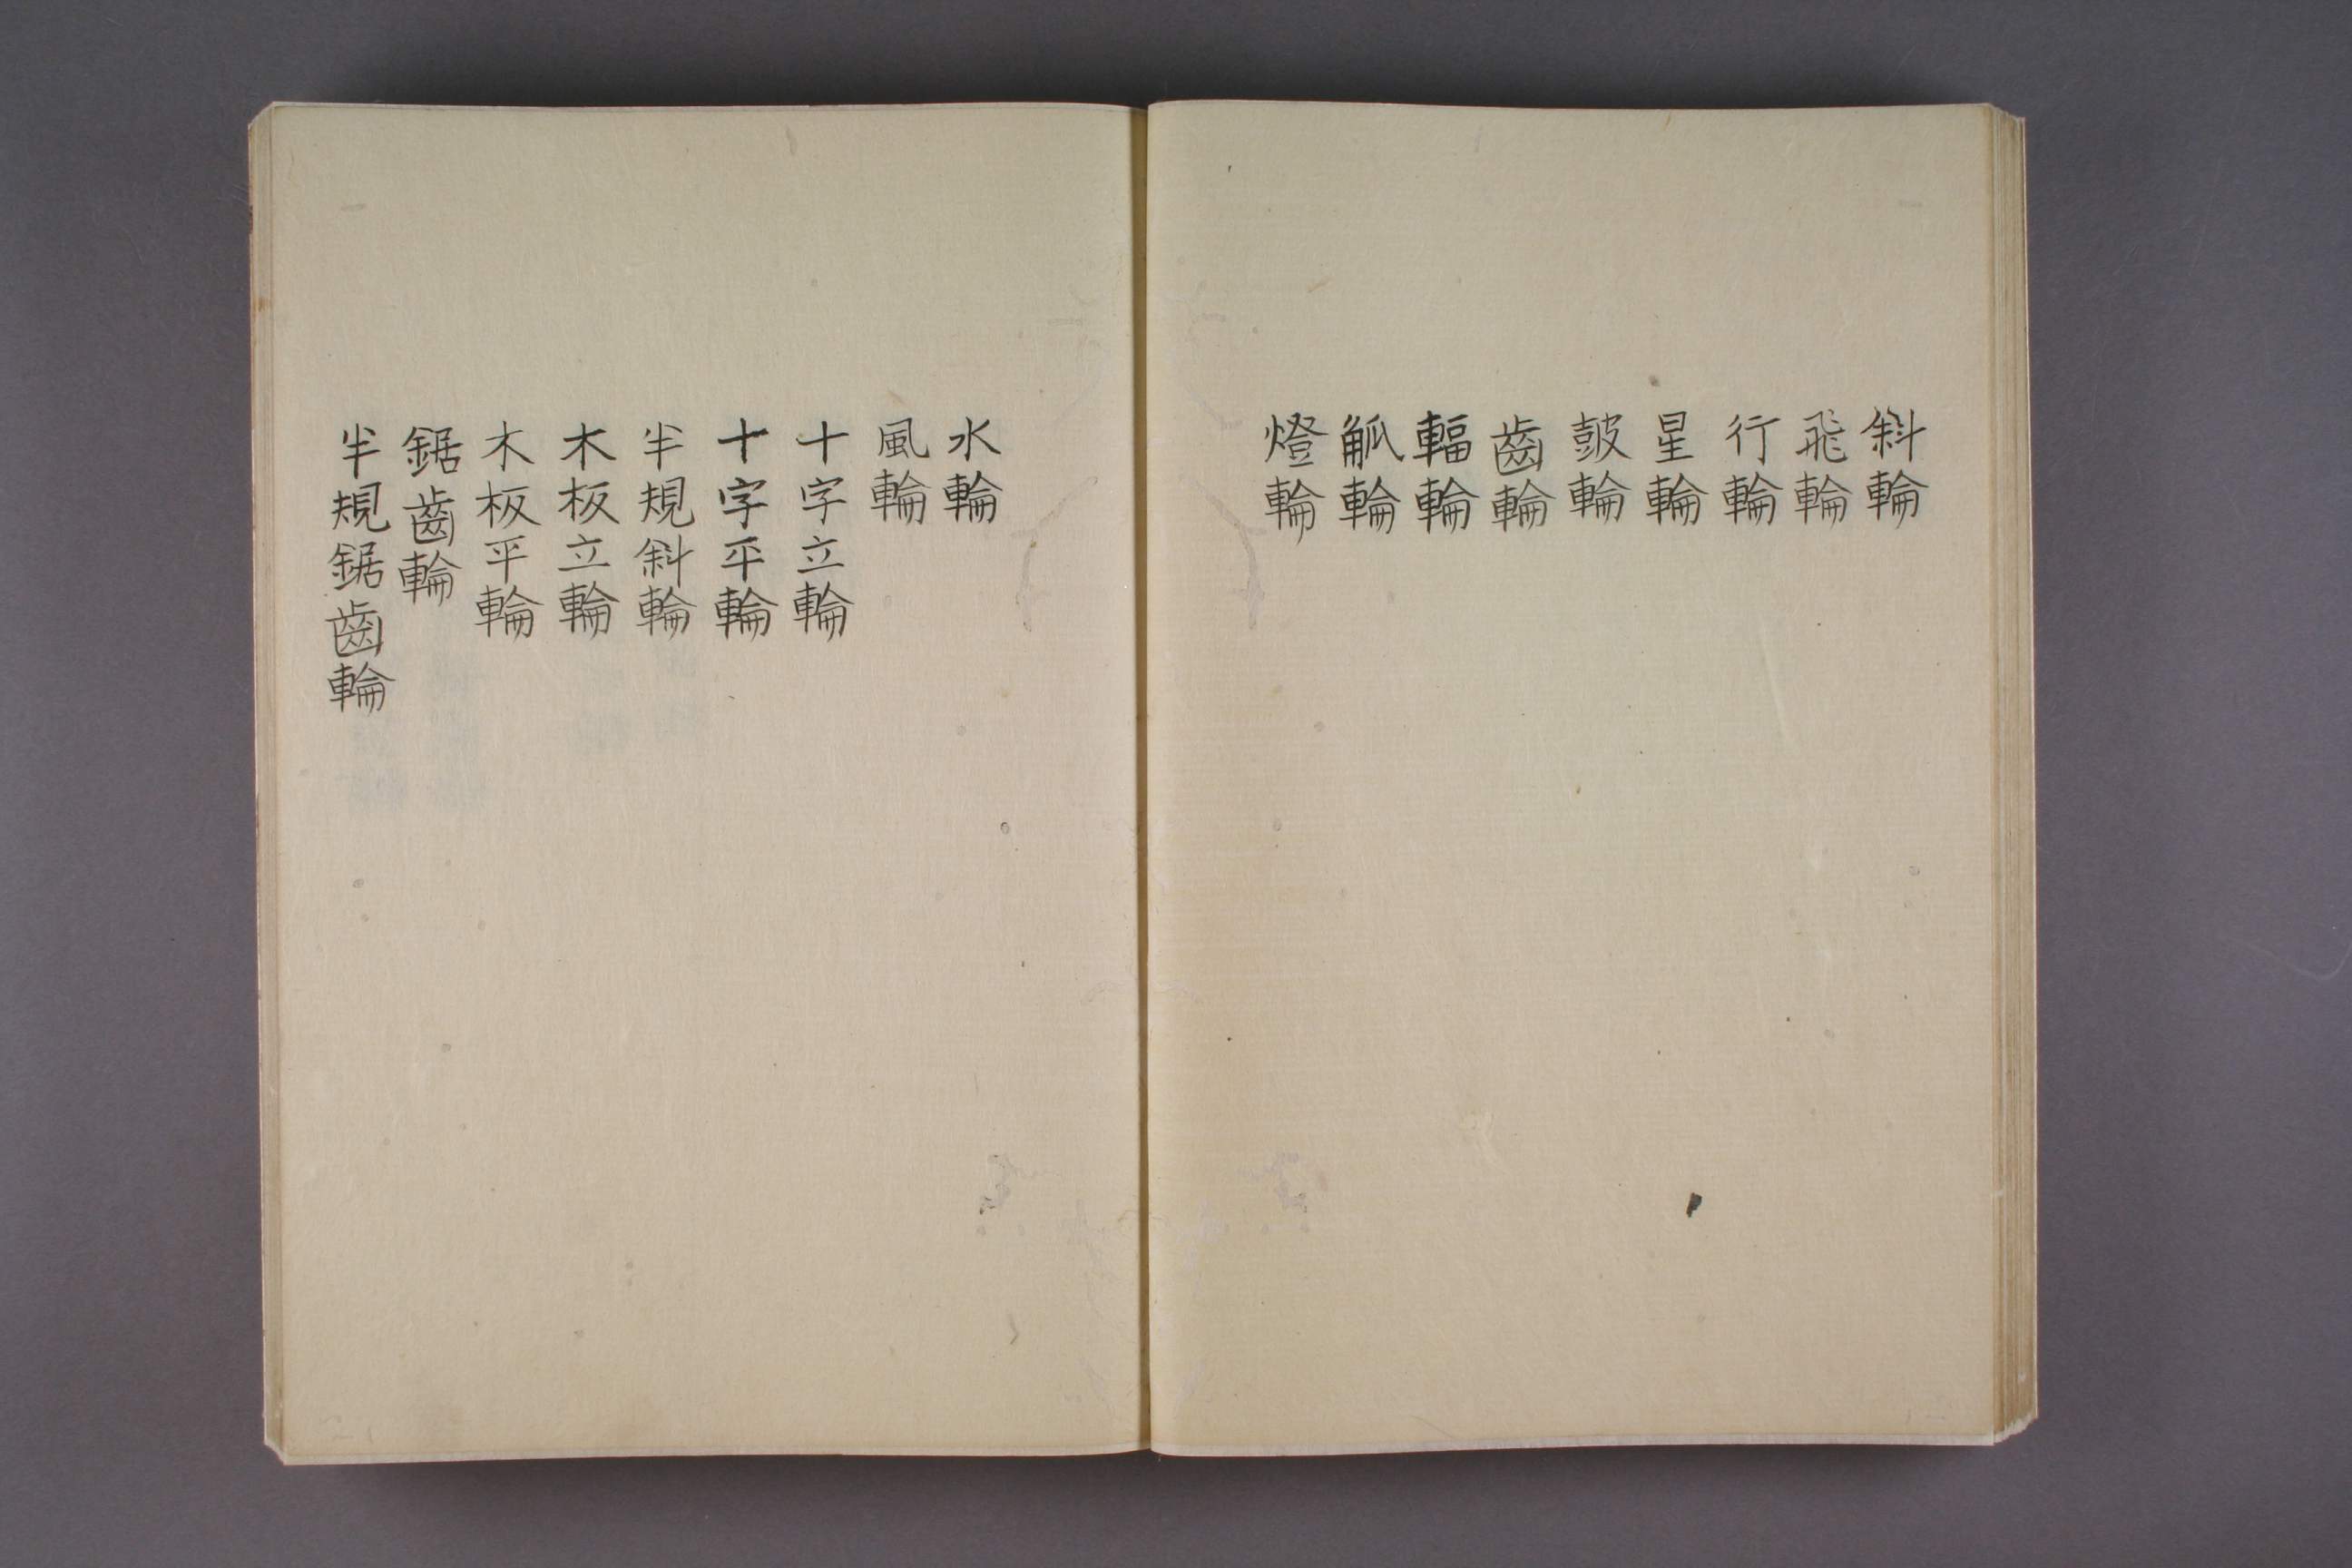 斜輪
飛輪
行輪
星輪
皷輪
齒輪
輻輪
觚輪
燈輪
水輪
風輪
十字立輪
十字平輪
半規斜輪
木板立輪
木板平輪
鋸齒輪
半規鋸齒輪